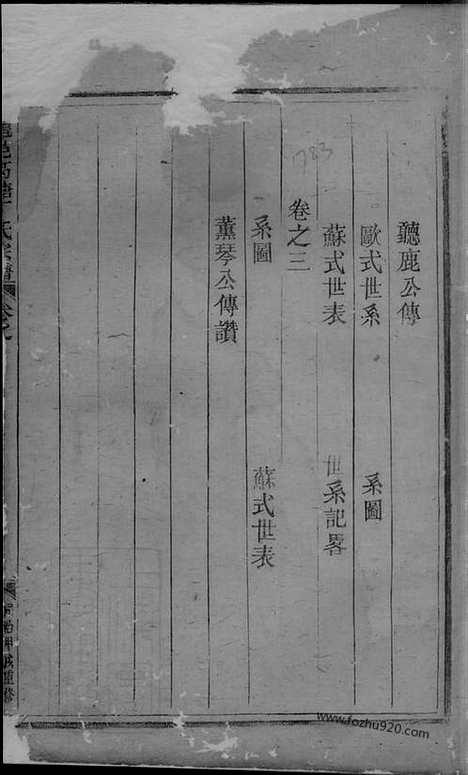 聽鹿公傳
歐式世系 系圖
蘇式世表 世系記畧
卷之三
系圖 蘇式世表
薰琴公傳讚
783
氏宗譜
重修
www.fozhu920.com